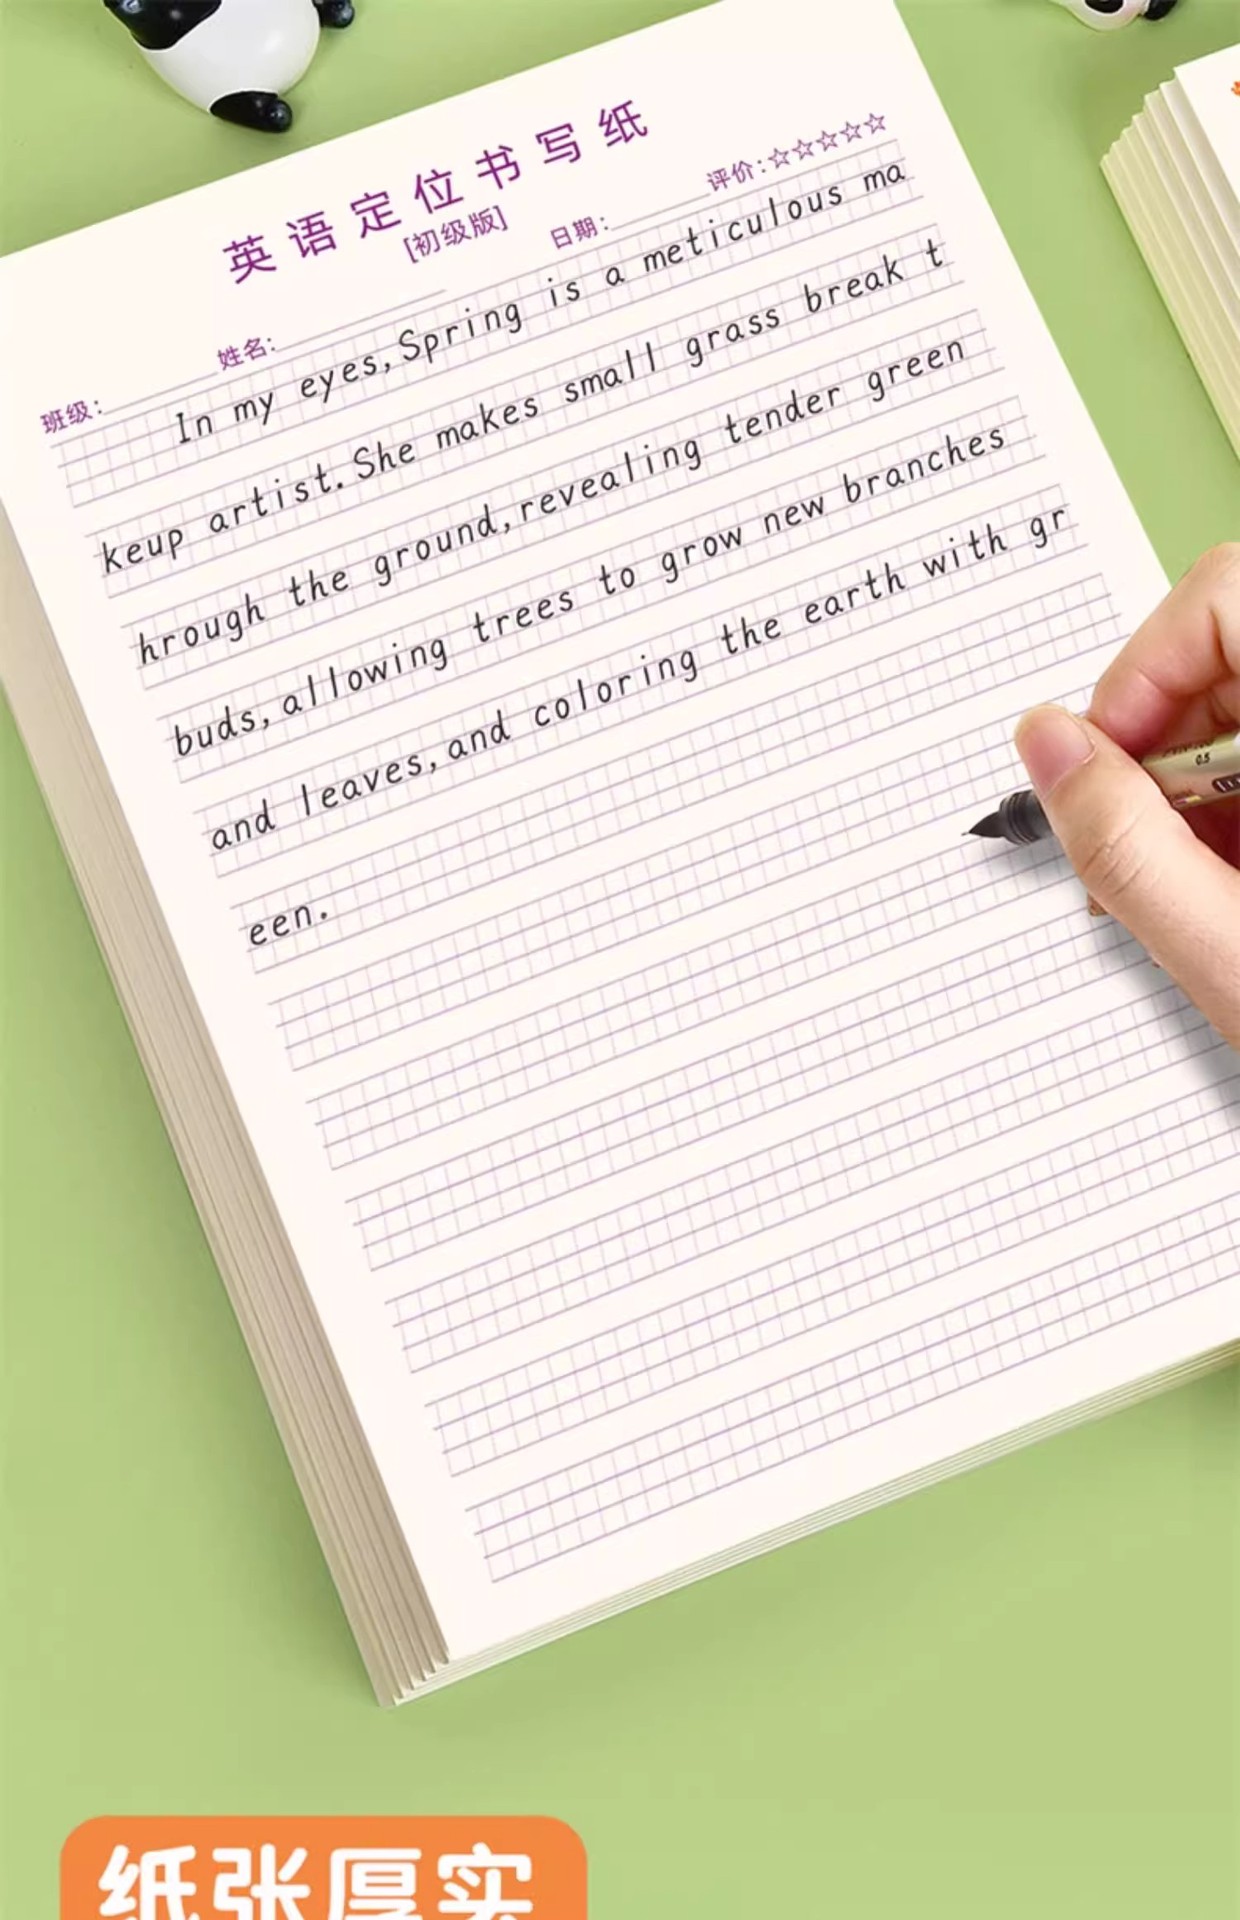 英语定位书写纸
[初级版]
班级: 姓名: 日期: 评价:☆☆☆☆☆
In my eyes,Spring is a meticulous ma
keup artist.She makes small grass break t
hrough the ground,revealing tender green
buds,allowing trees to grow new branches
and leaves,and coloring the earth with gr
een.
0.5
纸张厚实